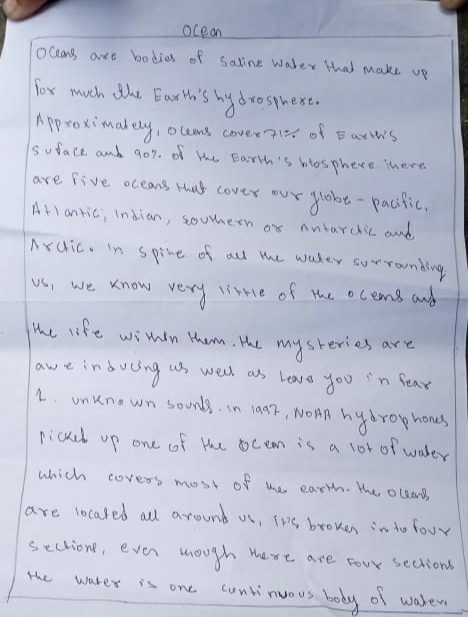 Ocean
Oceans are bodies of saline water that make up
for much the Earth's hydrosphere.
Approximately, oceans cover 71% of Earth's
suface and 90% of the Earth's biosphere. there
are five oceans that cover our globe - pacific,
Atlantic, Indian, southern or Antarctic and
Arctic. in spite of all the water surrounding
us, we know very little of the oceans and
the life within them. the mysteries are
awe inducing as well as leave you in fear
1. unknown sounds. in 1997, NOAA hydrophones
picked up one of the ocean is a lot of water
which covers most of the earth. the oceans
are located all around us, it's broken into four
sections, even though there are four sections
the water is one continuous body of water